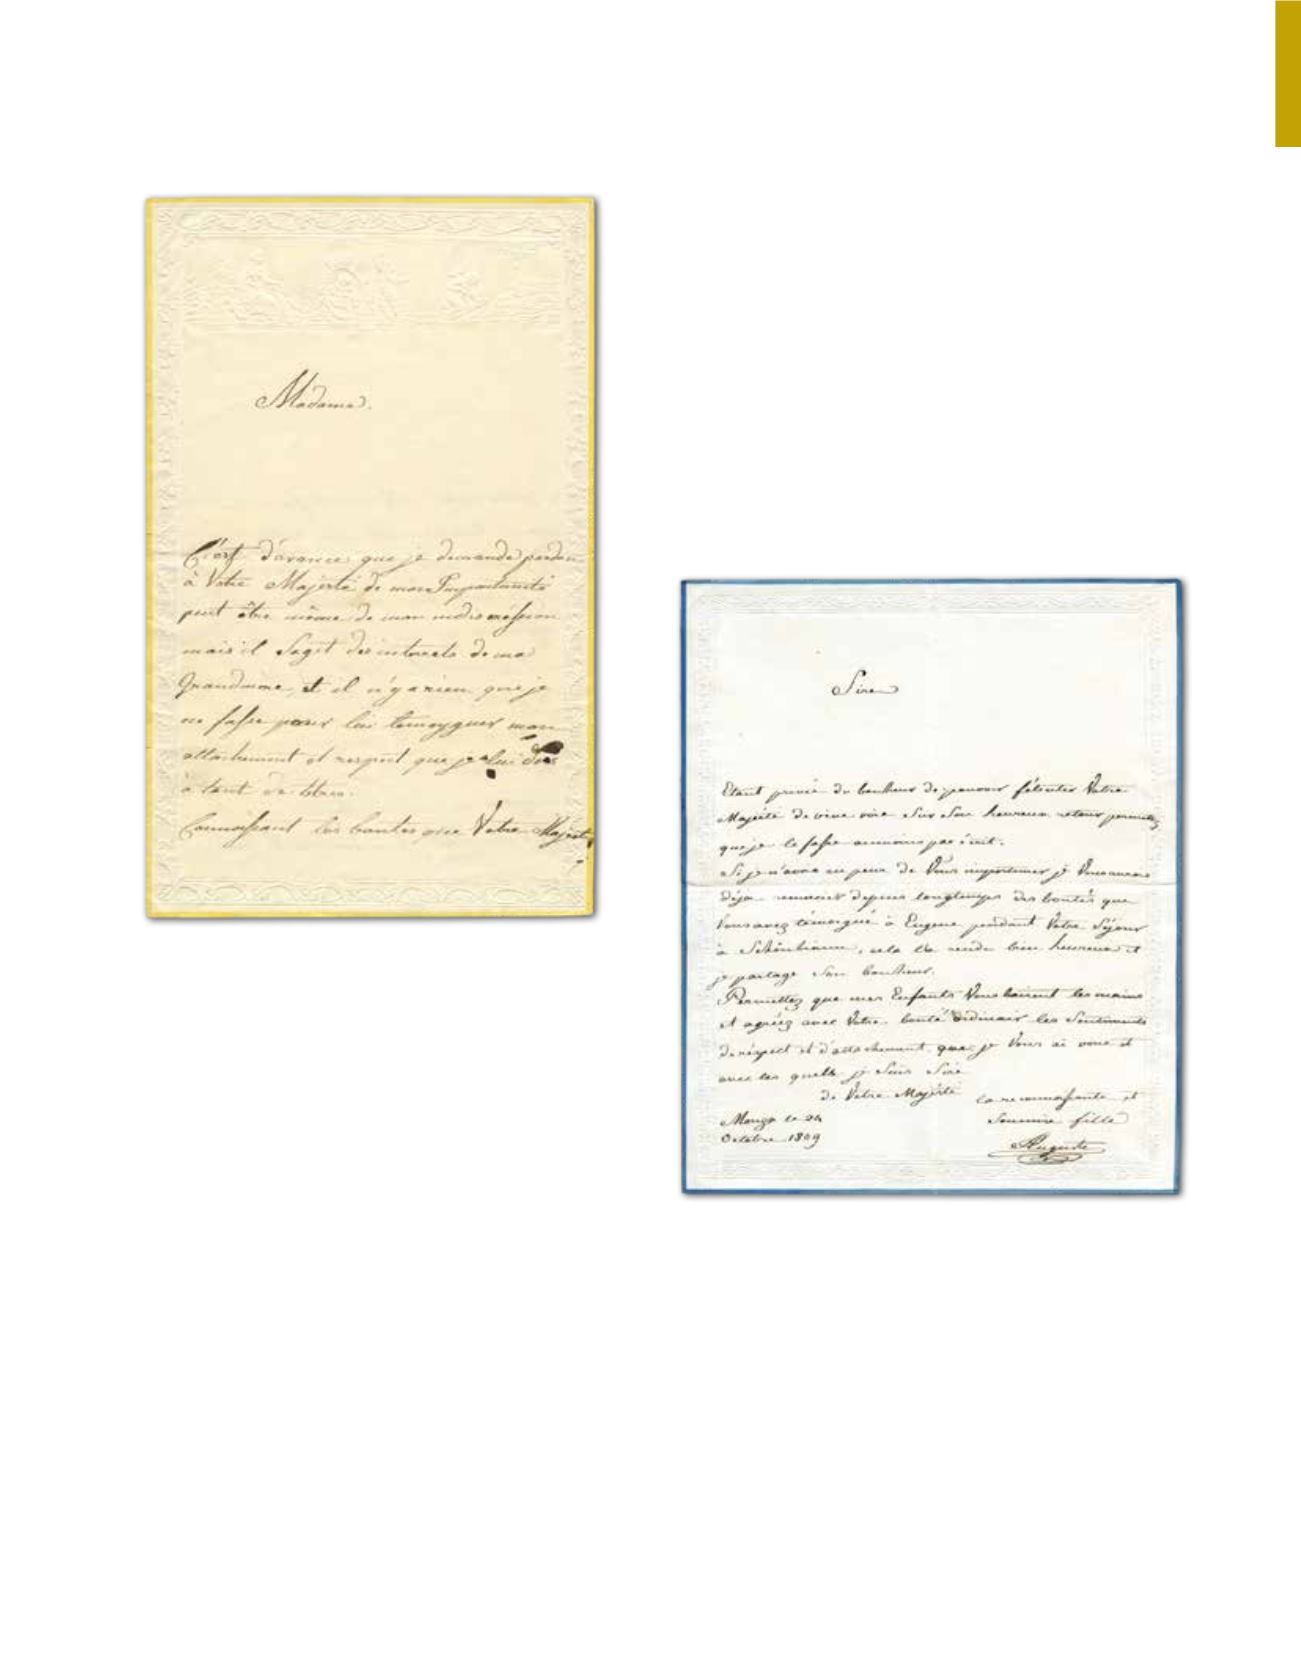 Madame.
C'est d'avance que je demande pardon
à Votre Majesté de mon Importunité
peut être même de mon indiscréssion
mais il s'agit des interrets de ma
Grandmere, et il n'y a rien que je
ne fasse pour lui temoygner mon
attachement et respect que je lui dois
à tant de titres.
Connaissant les bontés que Votre Majesté
Sire
Etant privée du bonheur de pouvoir féliciter Votre
Majesté de vive voix Sur Son heureux retour permettez
que je le fasse aumoins par écrit.
Si je n'avois eu peur de Vous importuner je Vous aurois
déja remercier depuis longtemps des bontés que
Vous avez témoigné à Eugene pendant Votre Séjour
à Schönbrunn, cela l'a rendu bien heureux et
je partage Son bonheur.
Permettez que mes Enfants Vous baisent les mains
et agréez avec Votre bonté ordinair les Sentiments
de réspect et d'attachement que je Vous ai voué et
avec les quells je Suis Sire
de Votre Majésté
la reconnaissante et
Soumise fille
Monza le 24
Octobre 1809
Auguste